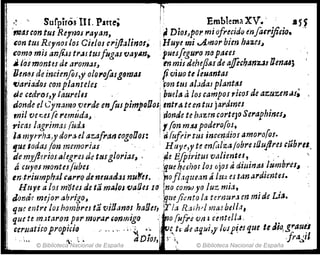 Suspiros III. Parte;
mas con tus Reynos rayan,
con tus Reynos los Cielos cristalinos,
como mis ansias tras tus fugas vayan,
à los montes de aromas,
llenas de inciensos, y olorosas gomas
variados con planteles
de cedros, y laureles
donde el Cynamo verde en sus pimpollos
mil vezes se remuda,
ricas lagrimas suda
la myrrha, y dora el azafran cogollos:
que todas son memorias
de mysterios alegres de tus glorias,
à cuyos montes subes
en triumphal carro de neuadas nubes.
Huye a los mōtes de tā malos valles
donde mejor abrigo,
que entre los hombres tā villanos halles,
que te mataron por morar conmigo
ceruatico propicio
à Dios,
Emblema XV. 255
à Dios, por mi ofrecido en sacrificio,
Huye mi Amor bien hazes,
pues seguro no paces
en mis dehesas de assechanzas llenas,
si viuo te leuantas
con tus aladas plantas
buela à los campos ricos de azuzenas,
entra te en tus jardines
donde te hazen cortejo Seraphines,
y son mas poderosos,
à sufrir tus incendios amorosos.
Huye, y te ensalza sobre illustres cūbres
de Espiritus valientes,
que hechos los ojos à diuinas lumbres,
no flaquean à luz es tan ardientes.
no como yo luz mia,
que siento la ternura en mi de Lia.
la Rachel mas bella,
no sufre vna centella.
ve te de aqui, y los pies que te dio graues
fragil
© Biblioteca Nacional de España
© Biblioteca Nacional de España